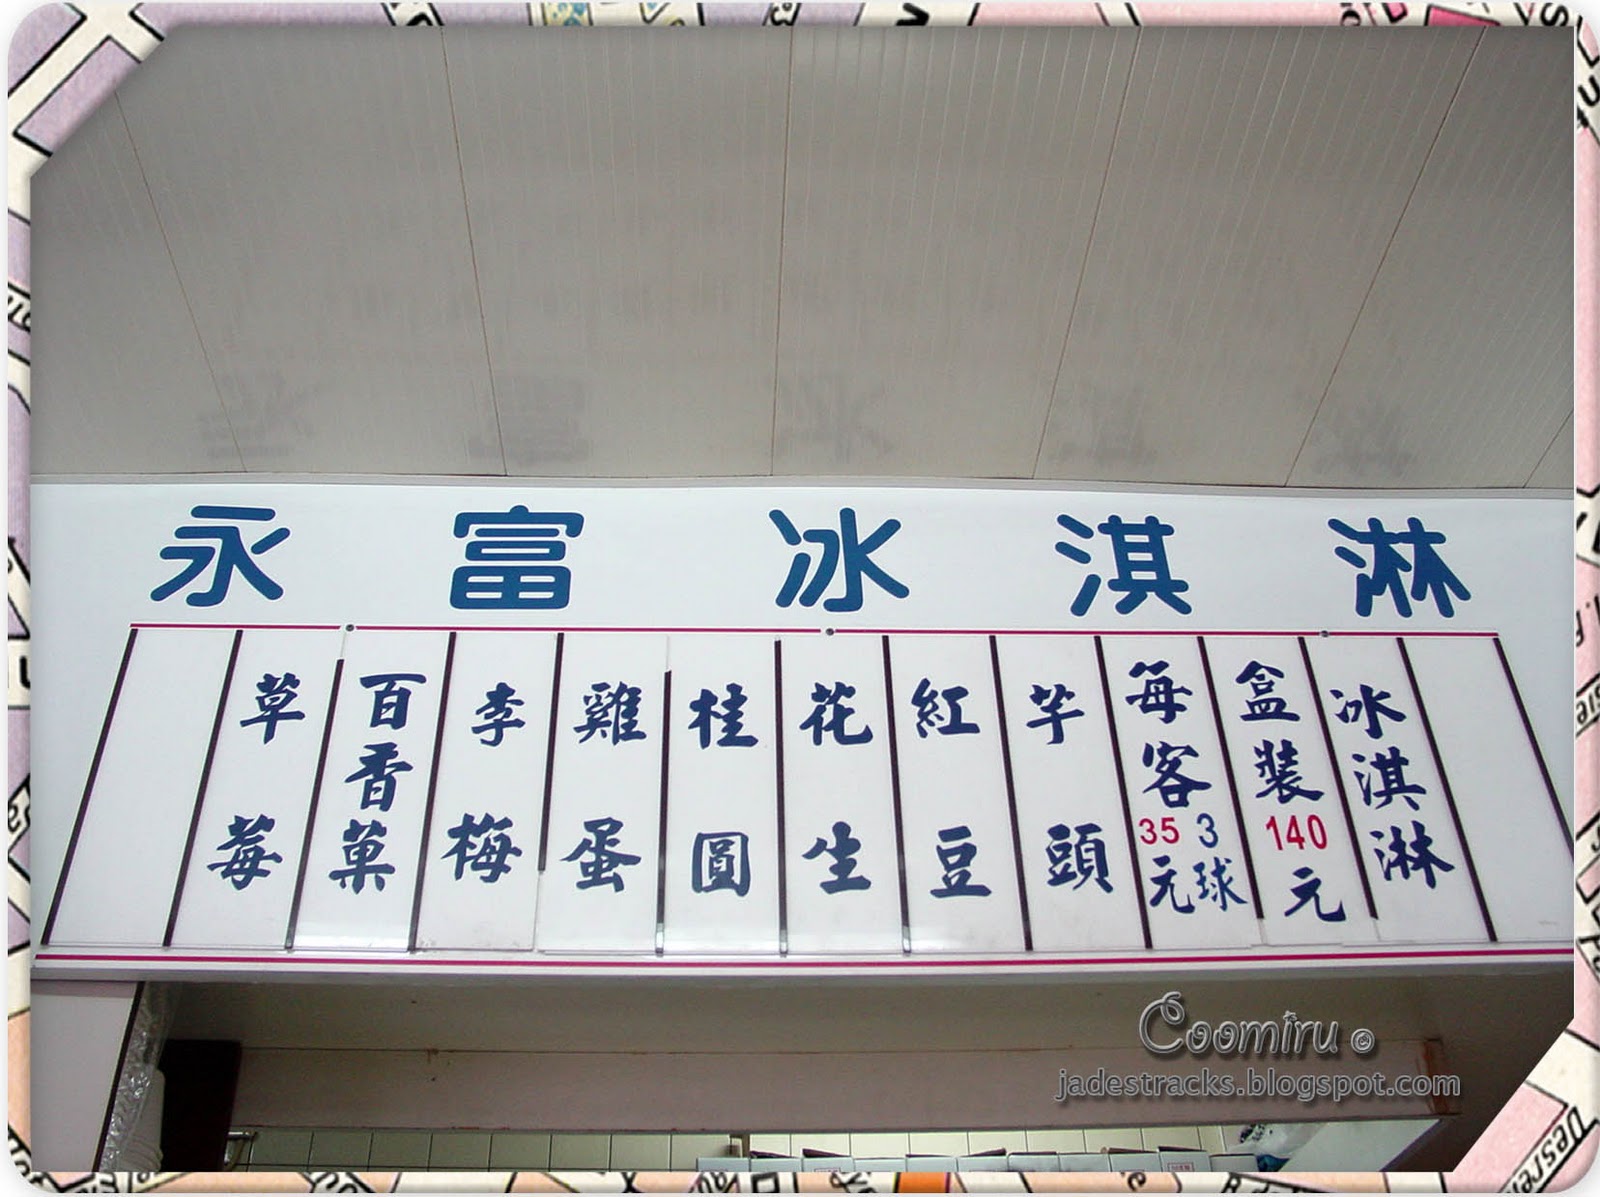 永富冰淇淋
冰淇淋
盒裝140元
每客3球35元
芋頭
紅豆
花生
桂圓
雞蛋
李梅
百香菓
草莓
Coomiru
jadestracks.blogspot.com